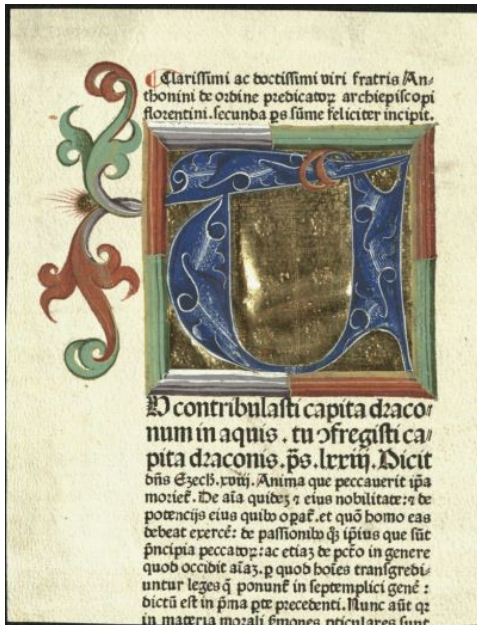 Clarissimi ac doctissimi viri fratris An-
thonini de ordine predicatoꝝ archiepiscopi
florentini. secunda ꝑs sūme feliciter incipit.
TU contribulasti capita draco-
num in aquis. tu ↄfregisti ca-
pita draconis. p̄s. lxxiij. Dicit
dn̄s Ezech̄. xviij. Anima que peccauerit ip̄a
moriet̄. De aīa quidez ⁊ eius nobilitate: ⁊ de
potencijs eius quibꝰ oꝑat̄. et quō homo eas
debeat exercē: de passionibꝰ q̄ꝫ ip̄ius que sūt
p̄ncipia peccatoꝝ: ac etiaz de pctō in genere
quod occidit aīaz. ꝑ quod hoīes transgredi-
untur leges q̄ ponunt̄ in septemplici genē:
dictū est in p̄ma ꝑte precedenti. Nunc aūt qꝛ
in materia morali ẜmones ꝑticulares sunt